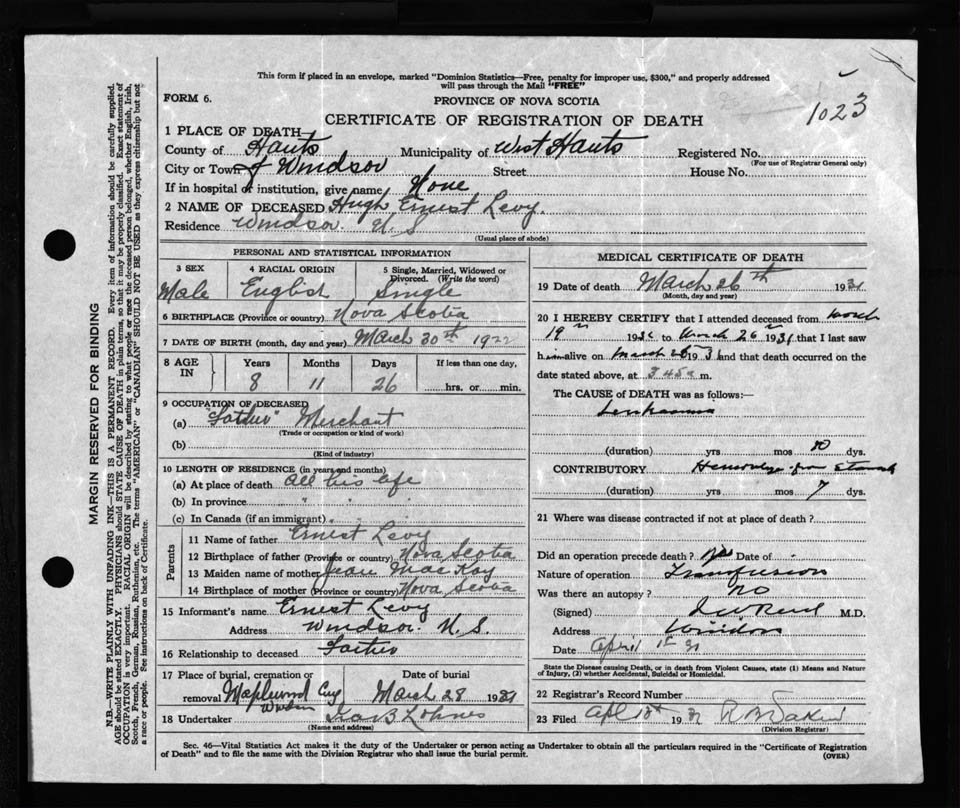 This form if placed in an envelope, marked "Dominion Statistics—Free, penalty for improper use, $300," and properly addressed
will pass through the Mail "FREE"
1023
FORM 6.
PROVINCE OF NOVA SCOTIA
CERTIFICATE OF REGISTRATION OF DEATH
1 PLACE OF DEATH—
County of Hants Municipality of West Hants Registered No.
(For use of Registrar General only)
City or Town of Windsor Street House No.
If in hospital or institution, give name None
2 NAME OF DECEASED Hugh Ernest Levy.
Residence Windsor. N.S
(Usual place of abode)
PERSONAL AND STATISTICAL INFORMATION
3 SEX 4 RACIAL ORIGIN 5 Single, Married, Widowed or
Divorced. (Write the word)
Male English Single
6 BIRTHPLACE (Province or country) Nova Scotia
7 DATE OF BIRTH (month, day and year) March 30th 1922
8 AGE
IN
Years Months Days If less than one day,
8 11 26 hrs. or min.
9 OCCUPATION OF DECEASED
(a) "Father" Merchant
(Trade or occupation or kind of work)
(b)
(Kind of industry)
10 LENGTH OF RESIDENCE (in years and months)
(a) At place of death all his life
(b) In province " " "
(c) In Canada (if an immigrant)
Parents
11 Name of father Ernest Levy
12 Birthplace of father (Province or country) Nova Scotia
13 Maiden name of mother Jean MacKay
14 Birthplace of mother (Province or country) Nova Scotia
15 Informant's name Ernest Levy
Address Windsor. N.S.
16 Relationship to deceased Father
17 Place of burial, cremation or Date of burial
removal Maplewood Cmy March 28 1931
Windsor
18 Undertaker
(Name and address)
MEDICAL CERTIFICATE OF DEATH
19 Date of death March 26th 1931
(Month, day and year)
20 I HEREBY CERTIFY that I attended deceased from March
19 1931 to March 26 1931 that I last saw
him alive on March 26 1931 and that death occurred on the
date stated above, at 3 45 m.
The CAUSE OF DEATH was as follows:—
(duration) yrs mos 10 dys.
CONTRIBUTORY Hemorrhage from Stomach
(duration) yrs mos 7 dys.
21 Where was disease contracted if not at place of death?
Did an operation precede death? Yes Date of
Nature of operation Transfusion
Was there an autopsy? No
(Signed) M.D.
Address Windsor
Date April 1st 31
State the Disease causing Death, or in death from Violent Causes, state (1) Means and Nature
of Injury, (2) whether Accidental, Suicidal or Homicidal.
22 Registrar's Record Number
23 Filed 1931
(Division Registrar)
Sec. 46—Vital Statistics Act makes it the duty of the Undertaker or person acting as Undertaker to obtain all the particulars required in the "Certificate of Registration
of Death" and to file the same with the Division Registrar who shall issue the burial permit. (OVER)
MARGIN RESERVED FOR BINDING
N.B.—WRITE PLAINLY WITH UNFADING INK—THIS IS A PERMANENT RECORD. Every item of information should be carefully supplied.
AGE should be stated EXACTLY. PHYSICIANS should STATE CAUSE OF DEATH in plain terms, so that it may be properly classified. Exact statement of
OCCUPATION is very important. RACIAL ORIGIN will be described by stating to what people or race the deceased person belonged, whether English, Irish,
Scotch, French, German, Russian, Ruthenian, etc. The terms "AMERICAN" or "CANADIAN" SHOULD NOT BE USED as they express citizenship but not
a race or people. See instructions on back of Certificate.